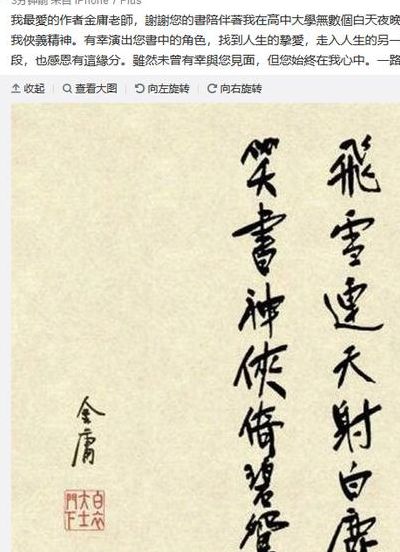 3分钟前 来自 iPhone 7 Plus
我最愛的作者金庸老師，謝謝您的書陪伴著我在高中大學無數個白天夜晚
我俠義精神。有幸演出您書中的角色，找到人生的摯愛，走入人生的另一
段，也感恩有這緣分。雖然未曾有幸與您見面，但您始終在我心中。一路
收起 查看大图 向左旋转 向右旋转
飛雪連天射白鹿
笑書神俠倚碧鴛
金庸